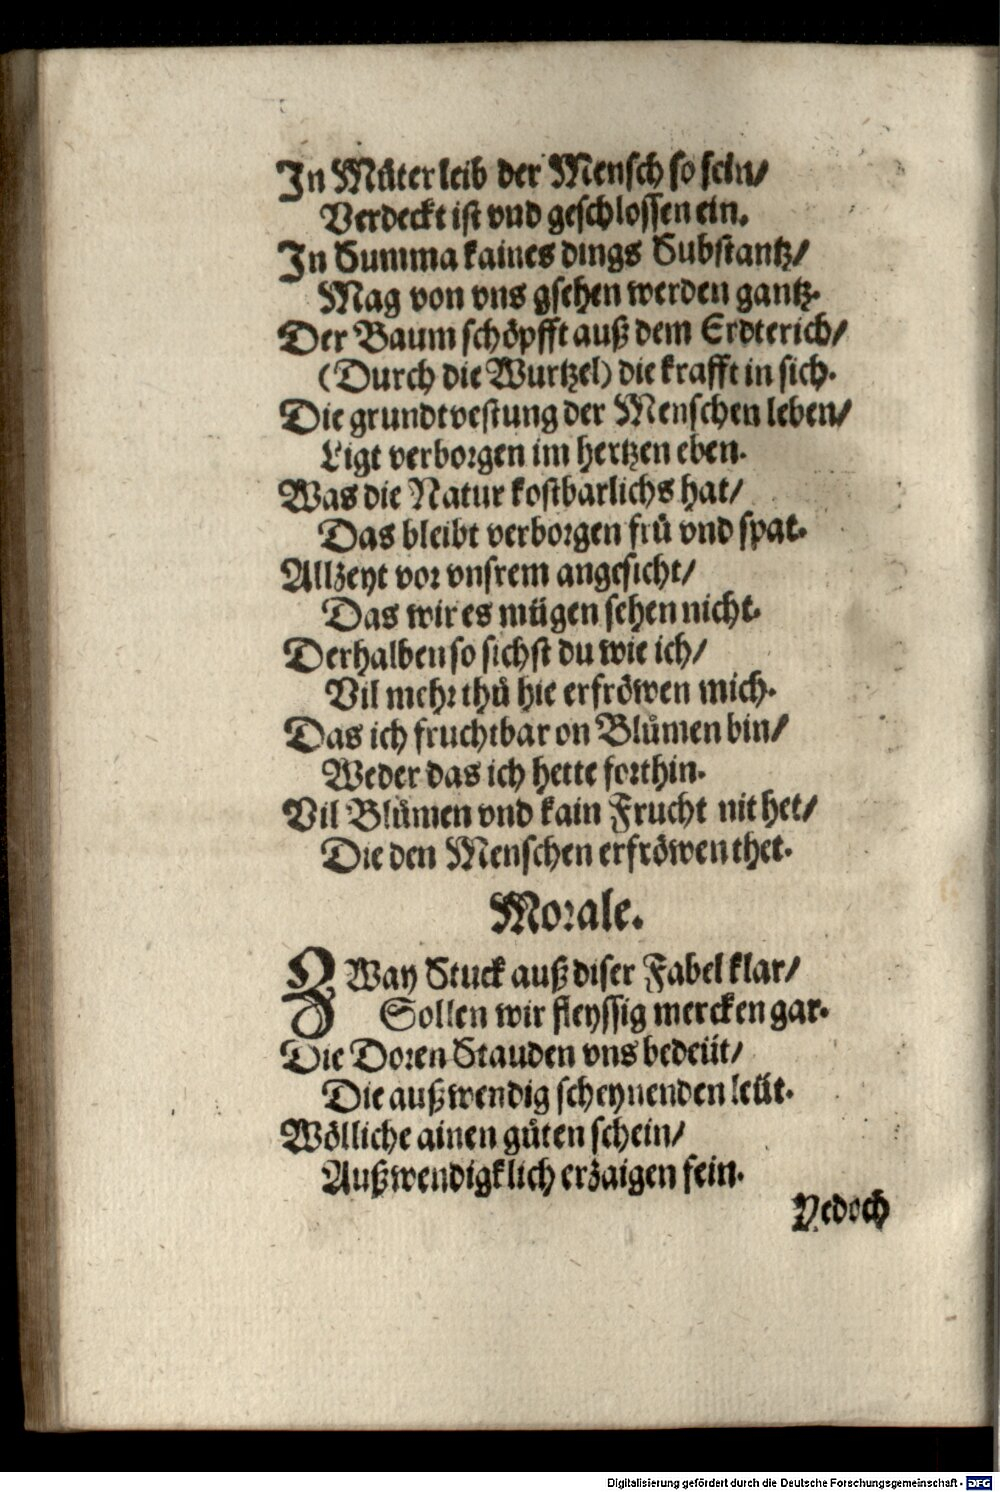 In Můter leib der Mensch so fein/
Verdeckt ist vnd geschlossen ein.
In Summa kaines dings Substantz/
Mag von vns gsehen werden gantz.
Der Baum schöpfft auß dem Erdterich/
(Durch die Wurtzel) die krafft in sich.
Die grundtvestung der Menschen leben/
Ligt verborgen im hertzen eben.
Was die Natur kostbarlichs hat/
Das bleibt verborgen frü vnd spat.
Allzeyt vor vnsrem angesicht/
Das wir es mügen sehen nicht.
Derhalben so sichst du wie ich/
Vil mehr thů hie erfröwen mich.
Das ich fruchtbar on Blůmen bin/
Weder das ich hette forthin.
Vil Blůmen vnd kain Frucht nit het/
Die den Menschen erfröwen thet.
Morale.
ZWay Stuck auß diser Fabel klar/
Sollen wir fleyssig mercken gar.
Die Doren Stauden vns bedeüt/
Die außwendig scheynenden leüt.
Wölliche ainen gůten schein/
Außwendigklich erzaigen fein.
Yedoch
Digitalisierung gefördert durch die Deutsche Forschungsgemeinschaft - DFG